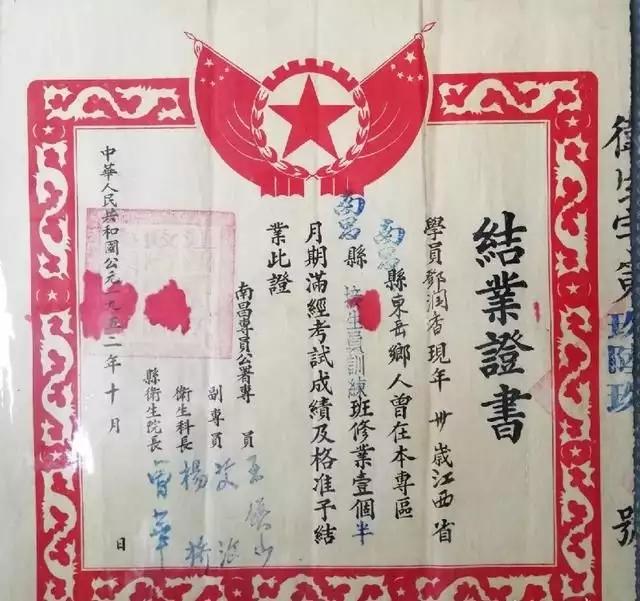 衛生字第玖陸玖號
結業證書
學員鄧潤香現年卅歲江西省
南昌縣東岳鄉人曾在本專區
南昌縣接生員訓練班修業壹個半
月期滿經考試成績及格准予結
業此證
南昌專員公署專員
副專員
衛生科長楊
縣衛生院長曾華
中華人民共和國公元一九五二年十月 日